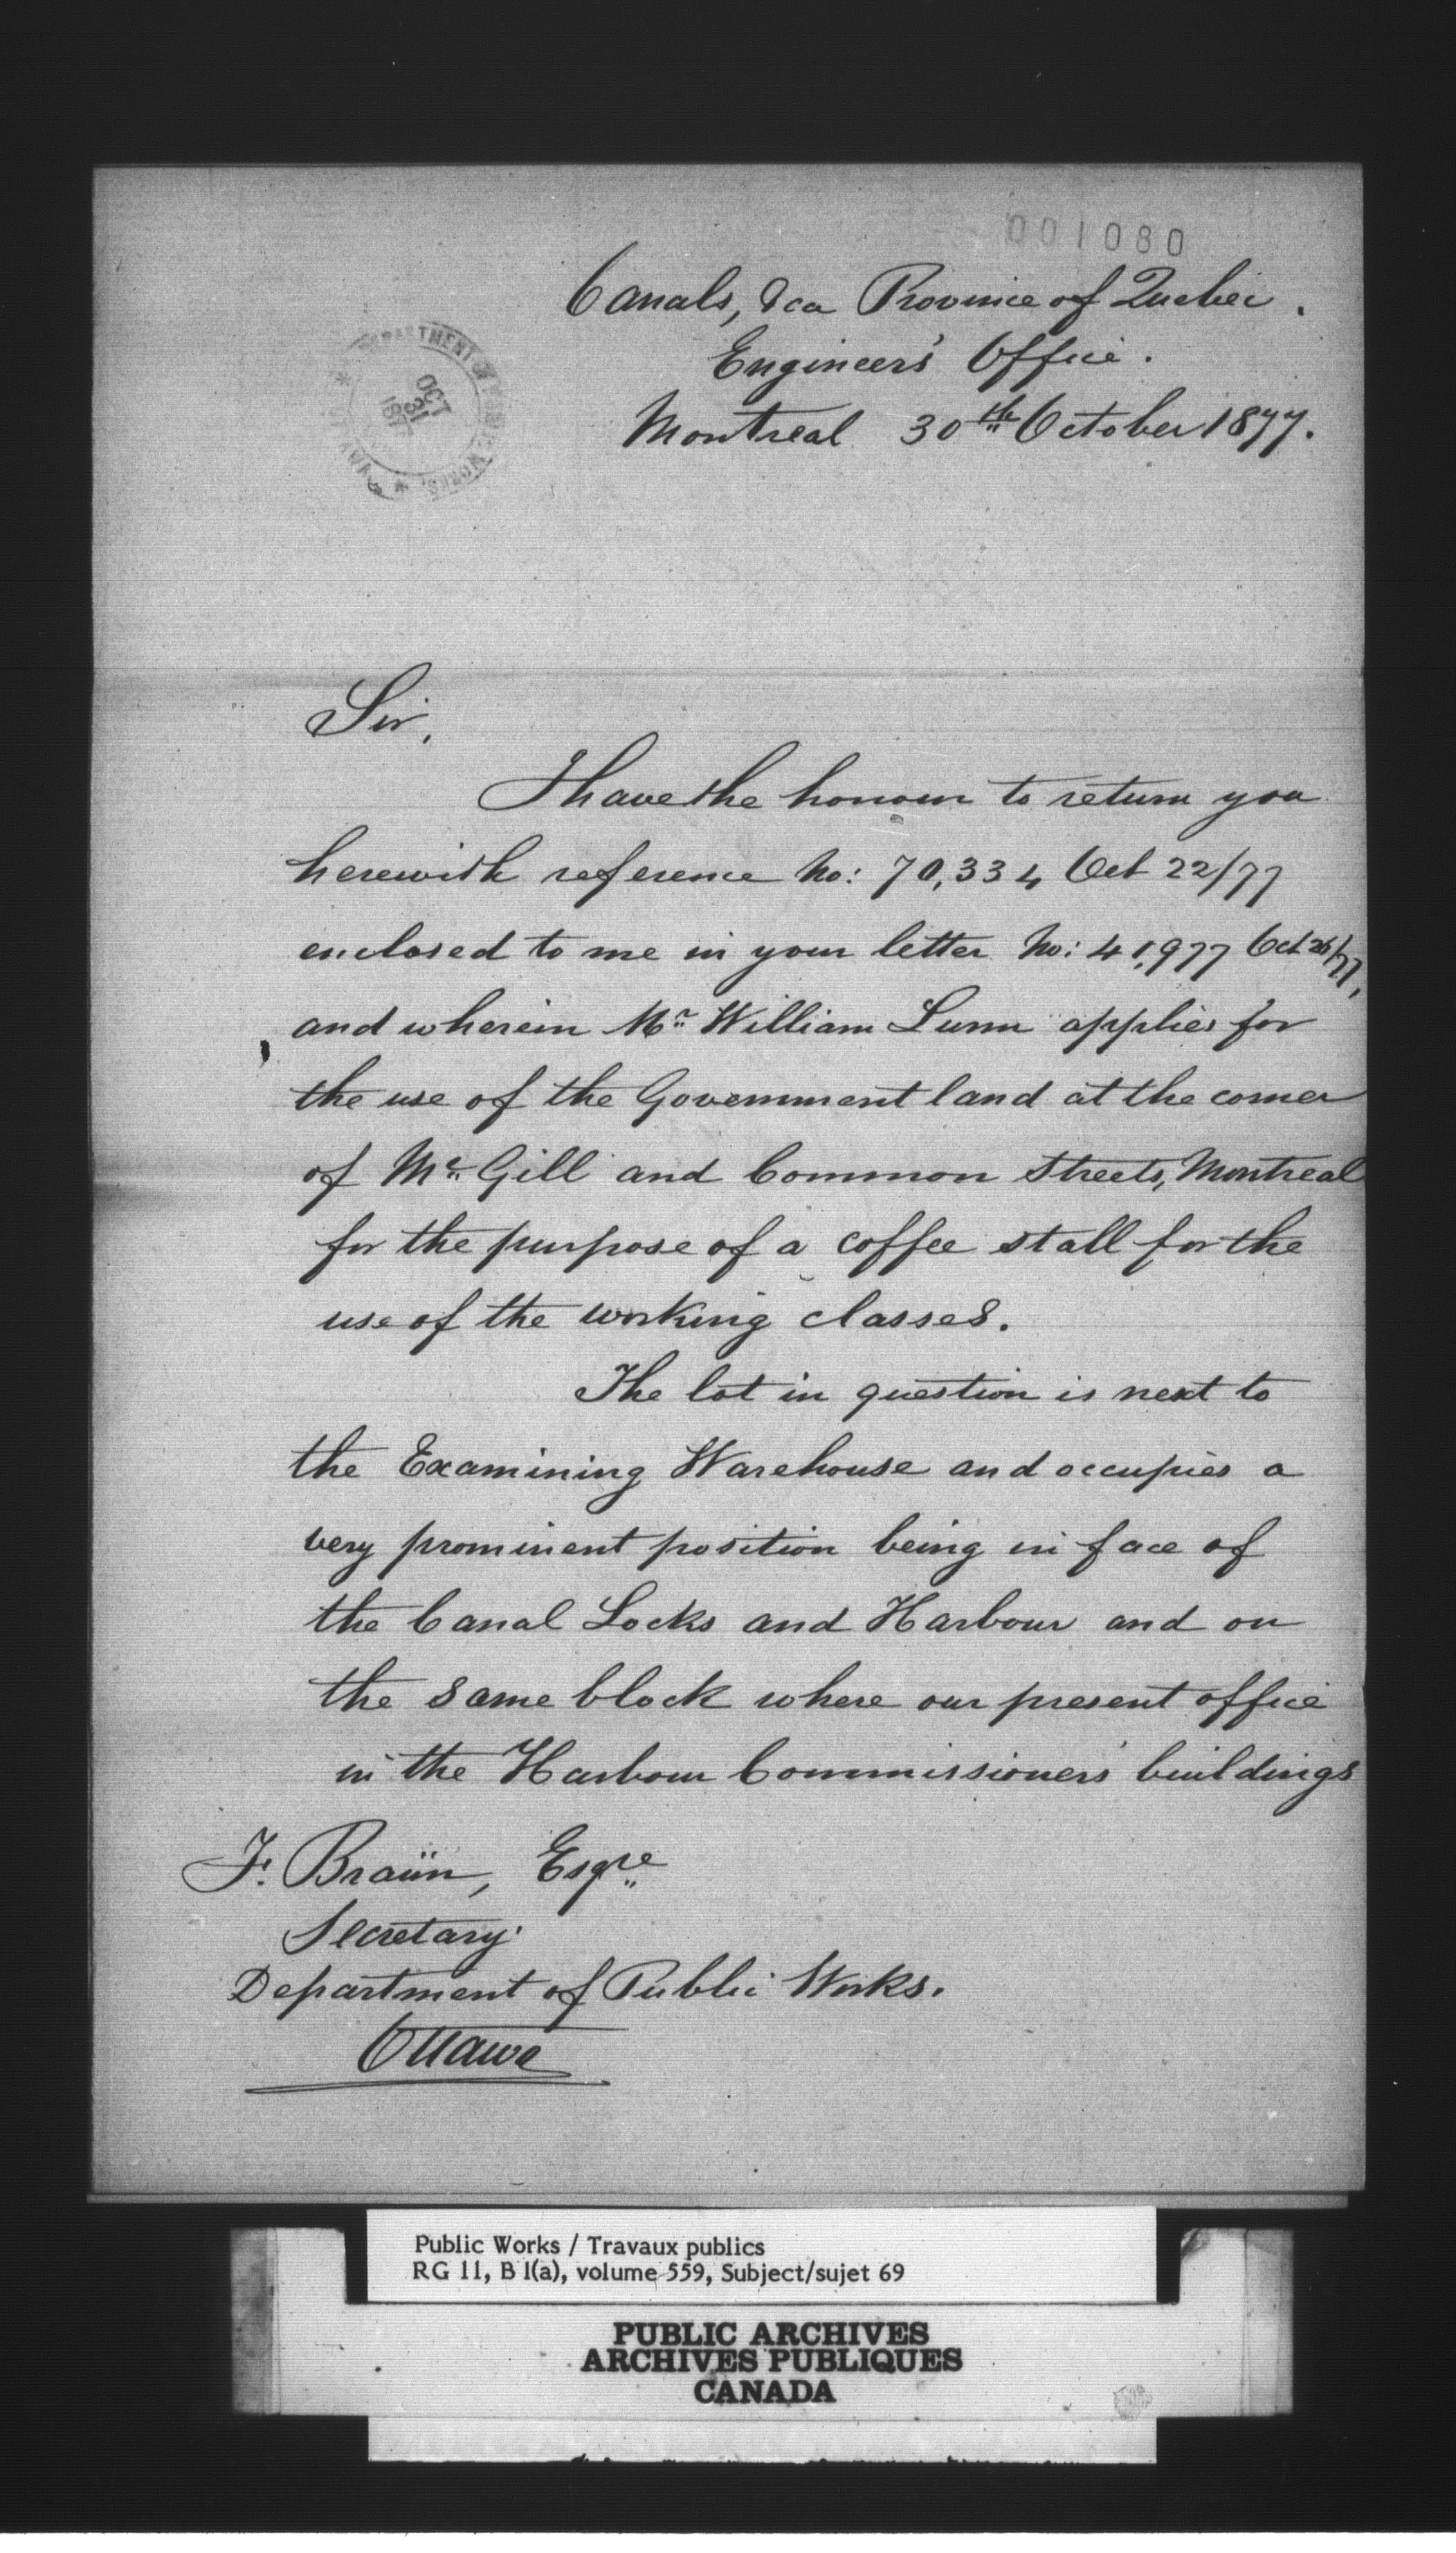 001080
Canals, &ca Province of Quebec.
Engineer's Office.
Montreal 30th October 1877.
DEPARTMENT OF PUBLIC WORKS.
OCT
31
187
Sir,
I have the honour to return you
herewith reference No: 70,334 Oct 22/77
enclosed to me in your letter No: 41,977 Oct 26/77,
and wherein Mr William Lunn applies for
the use of the Government land at the corner
of Mc Gill and Common Streets, Montreal
for the purpose of a coffee stall for the
use of the working classes.
The lot in question is next to
the Examining Warehouse and occupies a
very prominent position being in face of
the Canal Locks and Harbour and on
the same block where our present office
in the Harbour Commissioners' buildings
F. Braün, Esqre
Secretary
Department of Public Works.
Ottawa
Public Works / Travaux publics
RG 11, B 1(a), volume 559, Subject/sujet 69
PUBLIC ARCHIVES
ARCHIVES PUBLIQUES
CANADA